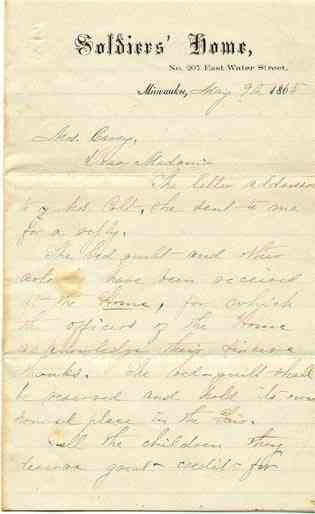 Soldiers' Home,
No. 207 East Water Street,
Milwaukee, May 9th 1865
Mrs.
Dear Madam
The letter addressed
to Mrs Colt, she sent to me
for a reply.
The bed quilt and other
have been received
at the Home, for which
the officers of the Home
acknowledge their sincere
thanks. The bedquilt shall
be reserved and hold its own
honest place in the Fair.
Tell the children they
deserve great credit for